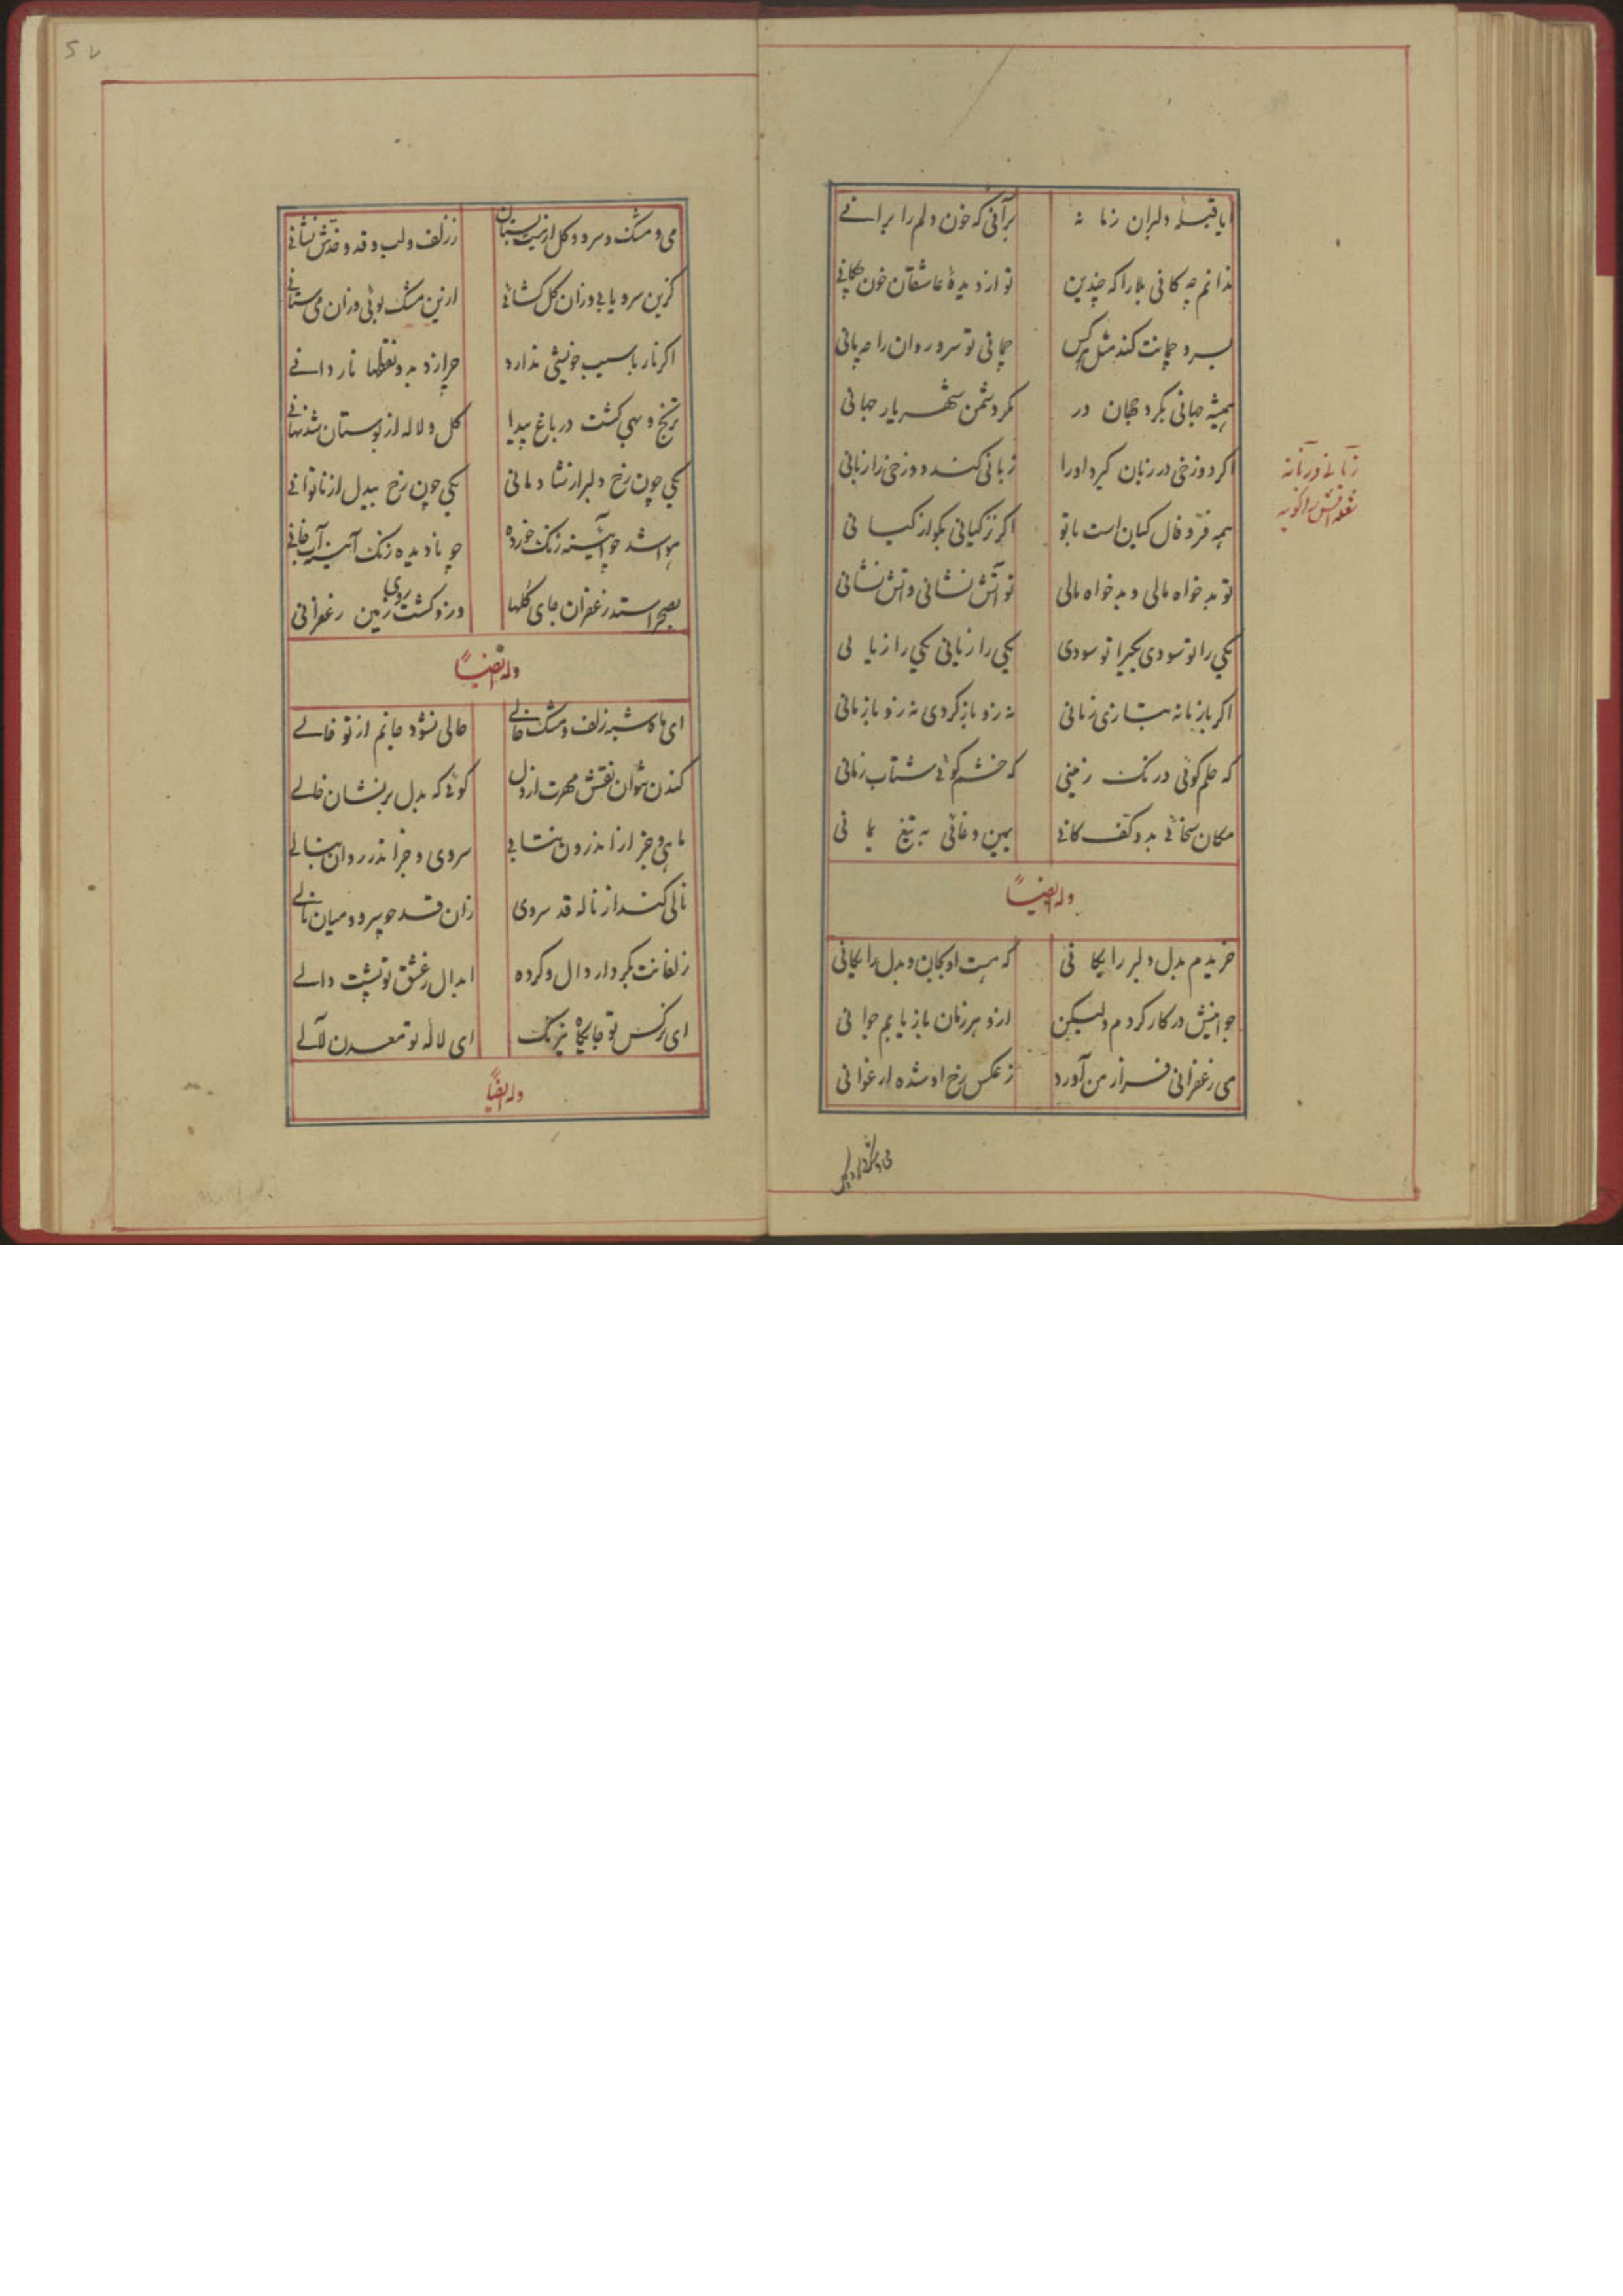 ایا قبلهٔ دلبران زمانه برآنی که خون دلم را برانے
ندانم چه کانی بلا را که چندین تو از دیدهٔ عاشقان خون چکانے
بسرو چمانت کند مثل هرکس چمانی تو سرو روان را چه مانی
همیشه جهانی بکرد جهان در مکر دشمن شهریار جهانی
اکر دوزخی در زبان کیرد او را زبانی کند دوزخی را زبانی
زبانے و زبانه
شعله آتش را کویند
همه فرّ و فال کیان است با تو اکر نز کیانی بکو از کیانی
تو بدخواه مالی و بدخواه مالی تو آتش نشانی و آتش نشانی
یکی را تو سودی یکیرا تو سودی یکی را زیانی یکی را زیانی
اکر با زمانه بتازی زمانی نه زو باز کردی نه زو باز مانی
که حلم کوئی درنک زمینی که خشم کوئے شتاب زمانی
مکان سخائے بدو کف کانے یمین وغائی به تیغ یمانی
وله ایضاً
خریدم بدل دلبر رایکانی که هست او بجان و بدل رایکانی
جوانیش در کار کردم ولیکن ازو هر زمان باز یابم جوانی
می زعفرانی فراز من آورد ز عکس رخ او شده ارغوانی
می و مشک و سرو
۵۷
می و مشک و سرو و کل از نیستان ز زلف و لب و قد و خدش نشانے
کزین سرو یابے وزان کل کشائے ازین مشک بوئی وزان می ستانے
اکر نار با سیب خویشی ندارد چرا زد بدو نقطها نار دانے
ترنج و بهی کشت در باغ پیدا کل و لاله از بوستان شد نهانے
یکی چون رخ دلبر از شادمانی یکی چون رخ بیدل از ناتوانے
هوا شد چو آئینه زنک خورده چو نادیده زنک آینه آب خانے
بصحرا ستد زعفران جای کلها وزو کشت روی زمین زعفرانی
وله ایضاً
ای ماه شبه زلف و مشک خالے خالی نشود جانم از تو خالے
کندن نتوان نقش مهرت از دل کوئے که بدل بر نشان خالے
ماهی و جز از اندرون نتابے سروی و جز اندر روان نبالے
نالی کند از ناله قد سروی زان قد چو سرو و میان نالے
زلفانت بکردار دال و کرده ابدال ز عشق تو پشت دالے
ای نرکس تو جایکاه نیرنک ای لاله تو معدن لآلے
وله ایضاً